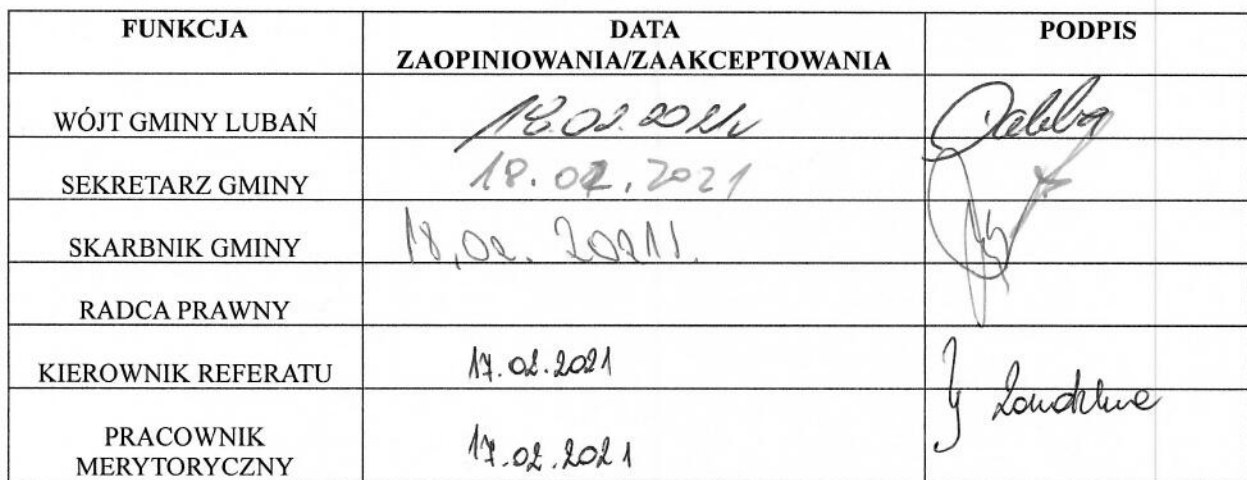 FUNKCJA
DATA
ZAOPINIOWANIA/ZAAKCEPTOWANIA
PODPIS
WÓJT GMINY LUBAŃ
18.02.2021r
SEKRETARZ GMINY
18.02.2021
SKARBNIK GMINY
18.02.2021r.
RADCA PRAWNY
KIEROWNIK REFERATU
17.02.2021
PRACOWNIK
MERYTORYCZNY
17.02.2021